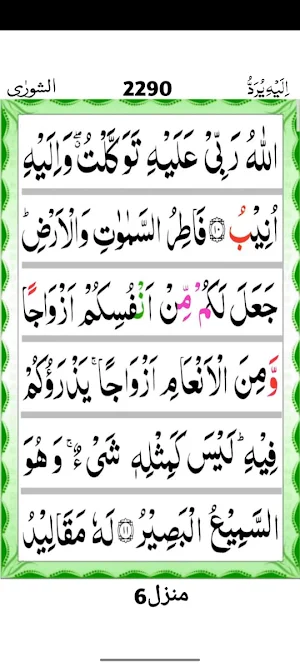 الشورٰی 2290 اِلَیْهِ یُرَدُّ
اللّٰهُ رَبِّیْ عَلَیْهِ تَوَكَّلْتُ ۖۗ وَ اِلَیْهِ
اُنِیْبُ ﴿۱۰﴾ فَاطِرُ السَّمٰوٰتِ وَ الْاَرْضِ ؕ
جَعَلَ لَكُمْ مِّنْ اَنْفُسِكُمْ اَزْوَاجًا
وَّ مِنَ الْاَنْعَامِ اَزْوَاجًا ۚ یَذْرَؤُكُمْ
فِیْهِ ؕ لَیْسَ كَمِثْلِهٖ شَیْءٌ ۚ وَ هُوَ
السَّمِیْعُ الْبَصِیْرُ ﴿۱۱﴾ لَهٗ مَقَالِیْدُ
منزل6